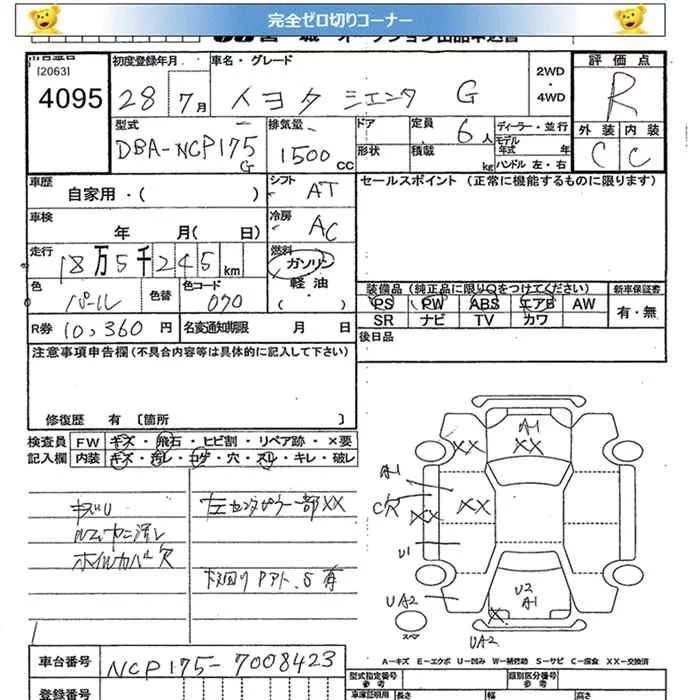 完全ゼロ切りコーナー
[2063]
4095
初度登録年月
28 7月
車名・グレード
トヨタ シエンタ G
2WD
・
4WD
評価点
R
外装 内装
C C
型式
DBA-NCP175
G
排気量
1500 CC
ドア
形状
定員 6人
積載 kg
ディーラー・並行
モデル年式 年
ハンドル 左・右
車歴
自家用・( )
シフト AT
セールスポイント (正常に機能するものに限ります)
車検
年 月( 日)
冷房 AC
走行
18万5千245km
燃料
ガソリン
軽油
・
( )
色
パール
色替
色コード
070
装備品(純正品に限りOをつけてください)
PS PW ABS エアB AW
SR ナビ TV カワ
新車保証書
有・無
R券 10,360円
名変通知期限 月 日
後日品
注意事項申告欄(不具合内容等は具体的に記入して下さい)
修復歴 有 〔箇所 〕
検査員 FW キズ・飛石・ヒビ割・リペア跡・×要
記入欄 内装 キズ・汚レ・コゲ・穴・スレ・キレ・破レ
キズU
ホイルカバー欠
左センタピラー一部XX
有
A1
XX
XX
A1
C欠
XX
XX
U1
UA2
U2
A1
X
スペア
UA2
A─キズ E─エクボ U─凹み W─補修跡 S─サビ C─腐食 XX─交換済
車台番号 NCP175-7008423
登録番号
型式指定番号
参考
類別区分番号
参考
車庫証明用
長さ
幅
高さ